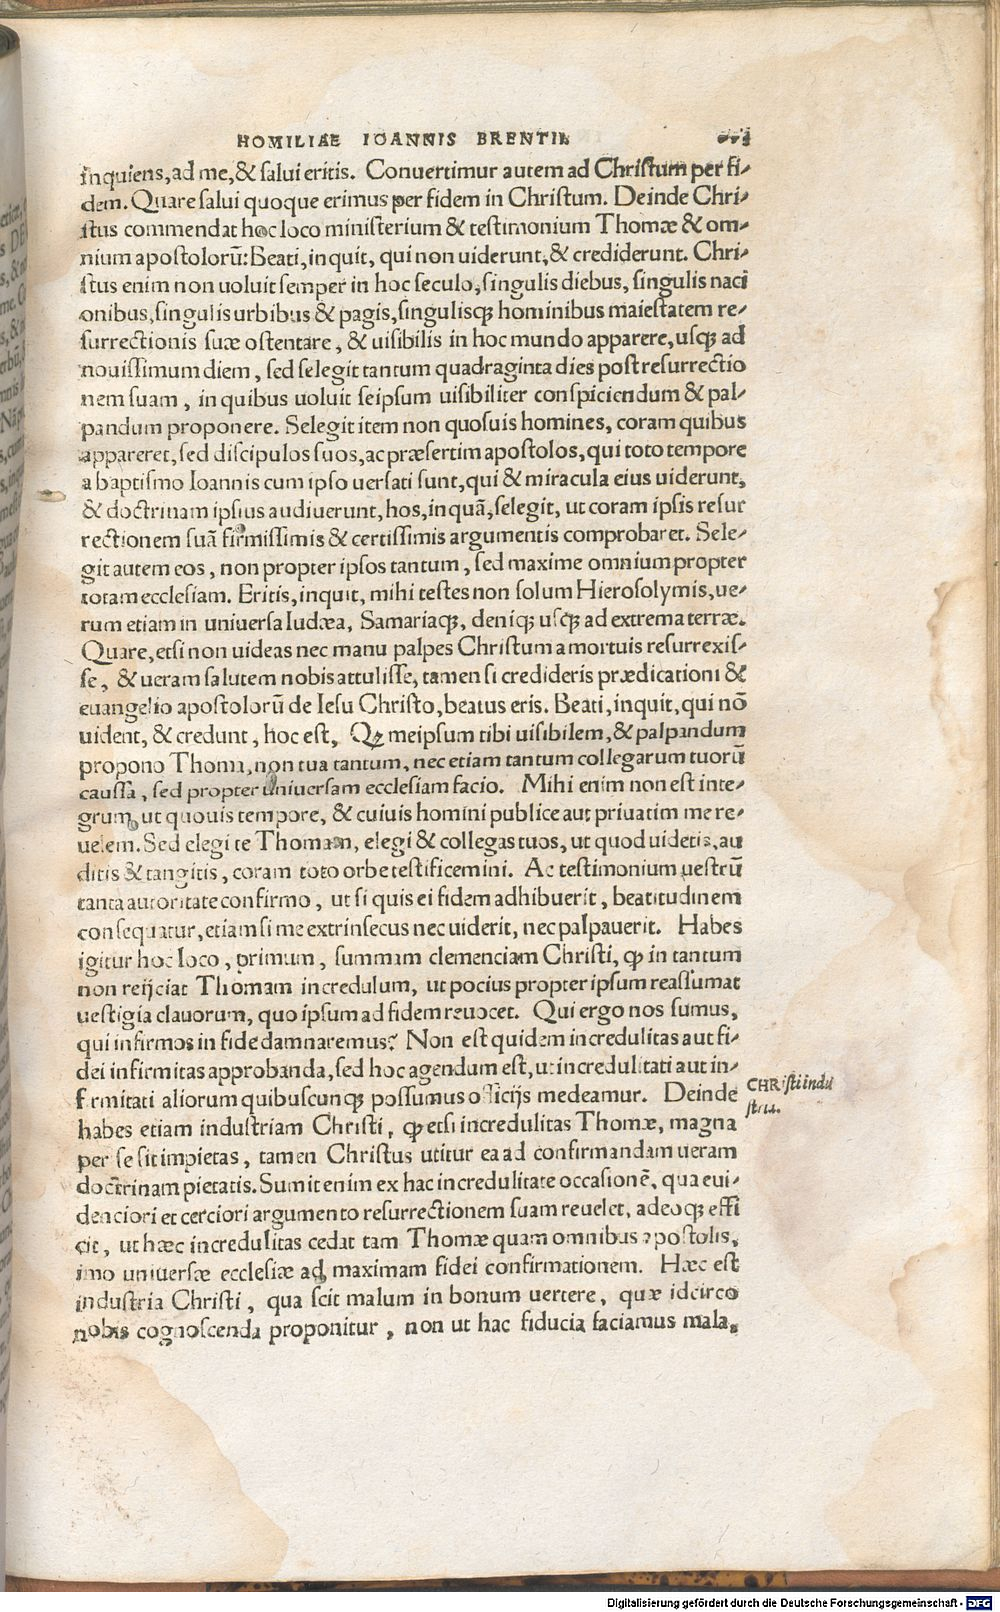 HOMILIAE IOANNIS BRENTII.
inquiens, ad me, & salui eritis. Conuertimur autem ad Christum per fi-
dem. Quare salui quoque erimus per fidem in Christum. Deinde Chri-
stus commendat hoc loco ministerium & testimonium Thomæ & om-
nium apostolorū: Beati, inquit, qui non uiderunt, & crediderunt. Chri-
stus enim non uoluit semper in hoc seculo, singulis diebus, singulis naci
onibus, singulis urbibus & pagis, singulisq; hominibus maiestatem re-
surrectionis suæ ostentare, & uisibilis in hoc mundo apparere, usq; ad
nouissimum diem, sed selegit tantum quadraginta dies post resurrectio
nem suam, in quibus uoluit seipsum uisibiliter conspiciendum & pal-
pandum proponere. Selegit item non quosuis homines, coram quibus
appareret, sed discipulos suos, ac præsertim apostolos, qui toto tempore
a baptismo Ioannis cum ipso uersati sunt, qui & miracula eius uiderunt,
& doctrinam ipsius audiuerunt, hos, inquā, selegit, ut coram ipsis resur
rectionem suā firmissimis & certissimis argumentis comprobaret. Sele-
git autem eos, non propter ipsos tantum, sed maxime omnium propter
totam ecclesiam. Eritis, inquit, mihi testes non solum Hierosolymis, ue-
rum etiam in uniuersa Iudæa, Samariaq;, deniq; usq; ad extrema terræ.
Quare, etsi non uideas nec manu palpes Christum a mortuis resurrexis-
se, & ueram salutem nobis attulisse, tamen si credideris prædicationi &
euangelio apostolorū de Iesu Christo, beatus eris. Beati, inquit, qui nō
uident, & credunt, hoc est, Qꝫ meipsum tibi uisibilem, & palpandum
propono Thoma, non tua tantum, nec etiam tantum collegarum tuorū
caussa, sed propter uniuersam ecclesiam facio. Mihi enim non est inte-
grum, ut quouis tempore, & cuiuis homini publice aut priuatim me re-
uelem. Sed elegi te Thomam, elegi & collegas tuos, ut quod uidetis, au
ditis & tangitis, coram toto orbe testificemini. Ac testimonium uestrū
tanta autoritate confirmo, ut si quis ei fidem adhibuerit, beatitudinem
consequatur, etiamsi me extrinsecus nec uiderit, nec palpauerit. Habes
igitur hoc loco, primum, summam clemenciam Christi, ꝙ in tantum
non reijciat Thomam incredulum, ut pocius propter ipsum reassumat
uestigia clauorum, quo ipsum ad fidem reuocet. Qui ergo nos sumus,
qui infirmos in fide damnaremus? Non est quidem incredulitas aut fi-
dei infirmitas approbanda, sed hoc agendum est, ut incredulitati aut in-
firmitati aliorum quibuscunq; possumus officijs medeamur. Deinde
habes etiam industriam Christi, ꝙ etsi incredulitas Thomæ, magna
per se sit impietas, tamen Christus utitur ea ad confirmandam ueram
doctrinam pietatis. Sumit enim ex hac incredulitate occasionē, qua eui-
denciori et cerciori argumento resurrectionem suam reuelet, adeoq; effi
cit, ut hæc incredulitas cedat tam Thomæ quam omnibus apostolis,
imo uniuersæ ecclesiæ ad maximam fidei confirmationem. Hæc est
industria Christi, qua scit malum in bonum uertere, quæ idcirco
nobis cognoscenda proponitur, non ut hac fiducia faciamus mala,
CHRisti indu
stria.
Digitalisierung gefördert durch die Deutsche Forschungsgemeinschaft - DFG